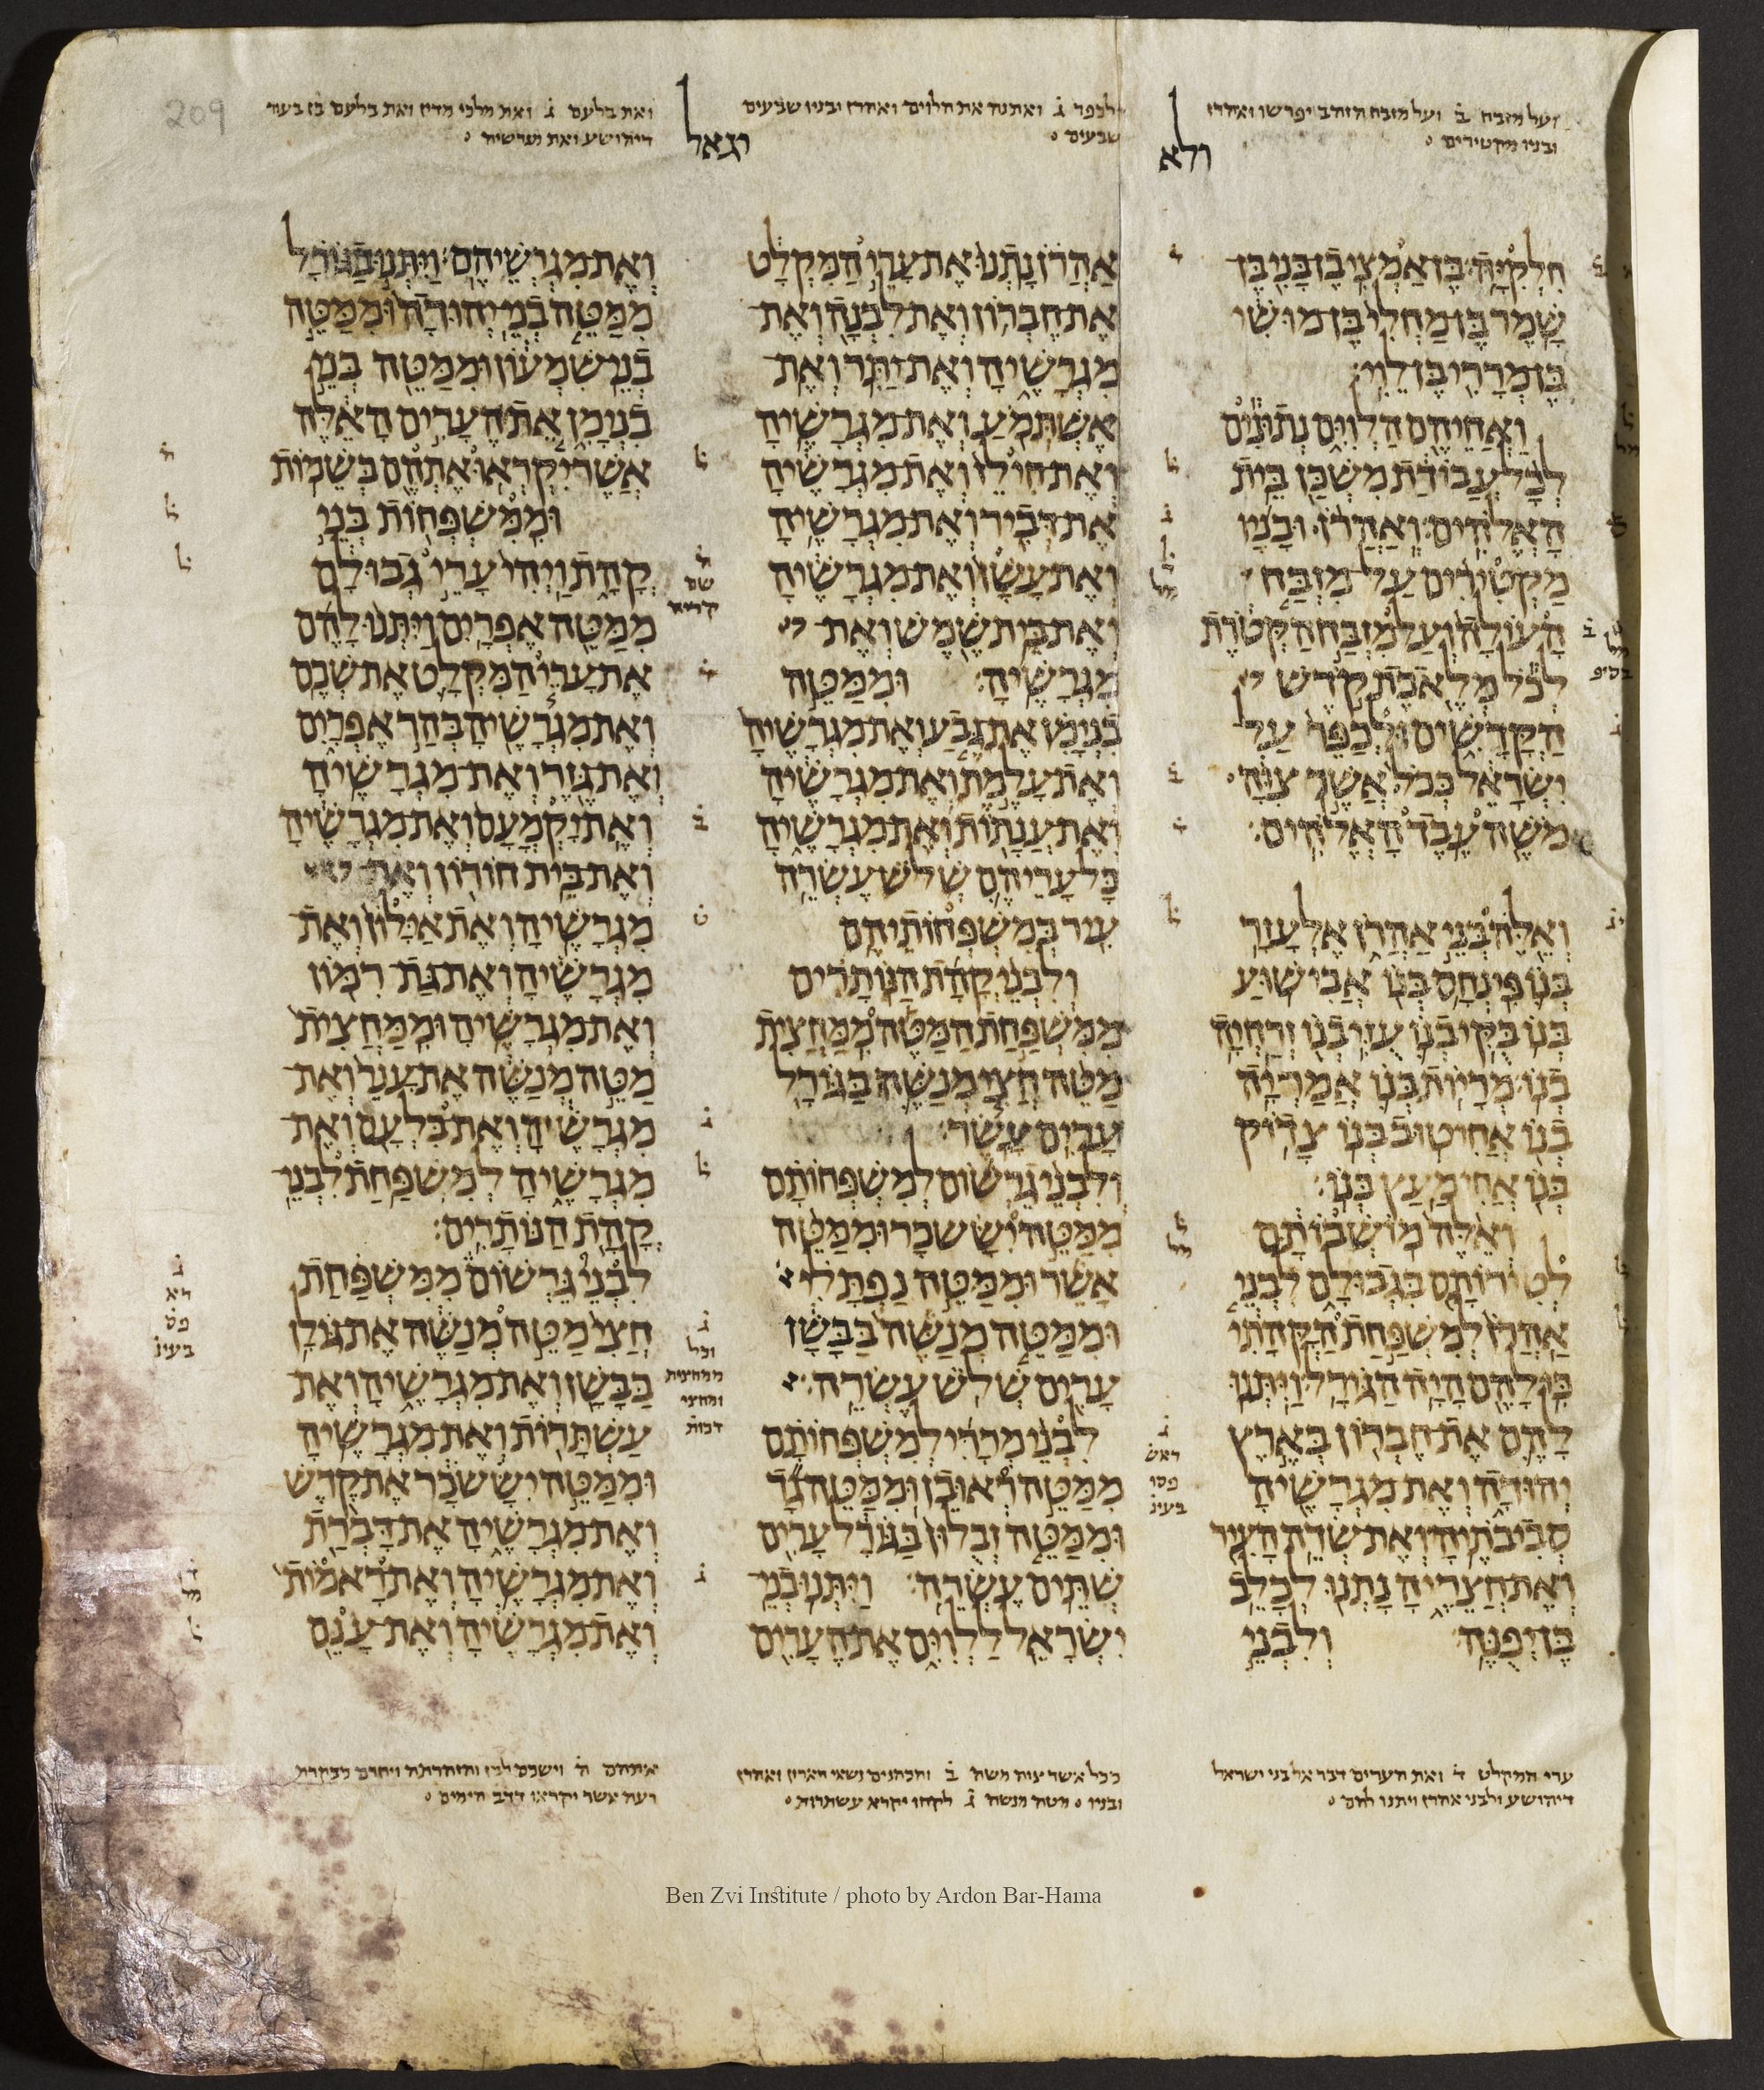 209
ועל מזבח ב ועל מזבח הזהב יפרשו ואהרן
ובניו מקטירים
ולא
ולכפר ג ואתנה את הלוים ואהרן ובניו שבעים
שבעים
יגאל
ואת בלעם ג ואת מלכי מדין ואת בלעם בן בעור
דיהושע ואת מגרשיה
חלקיה׃ בן אמצי בן בני בן
שמר׃ בן מחלי בן מושי
בן מררי בן לוי׃
ואחיהם הלוים נתונים
לכל עבודת משכן בית
האלהים׃ ואהרן ובניו
מקטירים על מזבח
העולה ועל מזבח הקטרת
לכל מלאכת קדש
הקדשים ולכפר על
ישראל ככל אשר צוה
משה עבד האלהים׃
ואלה בני אהרן אלעזר
בנו פינחס בנו אבישוע
בנו׃ בקי בנו עזי בנו זרחיה
בנו׃ מריות בנו אמריה
בנו אחיטוב בנו׃ צדוק
בנו אחימעץ בנו׃
ואלה מושבותם
לטירותם בגבולם לבני
אהרן למשפחת הקהתי
כי להם היה הגורל׃ ויתנו
להם את חברון בארץ
יהודה ואת מגרשיה
סביבתיה׃ ואת שדה העיר
ואת חצריה נתנו לכלב
בן יפנה׃ ולבני
אהרן נתנו את ערי המקלט
את חברון ואת לבנה ואת
מגרשיה ואת יתר ואת
אשתמע ואת מגרשיה׃
ואת חילז ואת מגרשיה
את דביר ואת מגרשיה׃
ואת עשן ואת מגרשיה
ואת בית שמש ואת
מגרשיה׃ וממטה
בנימן את גבע ואת מגרשיה
ואת עלמת ואת מגרשיה
ואת ענתות ואת מגרשיה
כל עריהם שלש עשרה
עיר במשפחותיהם׃
ולבני קהת הנותרים
ממשפחת המטה ממחצית
מטה חצי מנשה בגורל
ערים עשר׃
ולבני גרשום למשפחותם
ממטה יששכר וממטה
אשר וממטה נפתלי
וממטה מנשה בבשן
ערים שלש עשרה׃
לבני מררי למשפחותם
ממטה ראובן וממטה גד
וממטה זבלון בגורל ערים
שתים עשרה׃ ויתנו בני
ישראל ללוים את הערים
ואת מגרשיהם׃ ויתנו בגורל
ממטה בני יהודה וממטה
בני שמעון וממטה בני
בנימן את הערים האלה
אשר יקראו אתהם בשמות׃
וממשפחות בני
קהת ויהי ערי גבולם
ממטה אפרים׃ ויתנו להם
את ערי המקלט את שכם
ואת מגרשיה בהר אפרים
ואת גזר ואת מגרשיה׃
ואת יקמעם ואת מגרשיה
ואת בית חורון ואת
מגרשיה׃ ואת אילון ואת
מגרשיה ואת גת רמון
ואת מגרשיה׃ וממחצית
מטה מנשה את ענר ואת
מגרשיה ואת בלעם ואת
מגרשיה למשפחת לבני
קהת הנותרים׃
לבני גרשום ממשפחת
חצי מטה מנשה את גולן
בבשן ואת מגרשיה ואת
עשתרות ואת מגרשיה׃
וממטה יששכר את קדש
ואת מגרשיה את דברת
ואת מגרשיה׃ ואת ראמות
ואת מגרשיה ואת ענם
ערי המקלט ד ואת הערים דבר אל בני ישראל
דיהושע ולבני אהרן ויתנו להם
ככל אשר צוה משה ב והכהנים נשאי הארון ואהרן
ובניו מטה מנשה ג לקחו יקרא עשתרות
אתהם ה וישכם לבן והזהרתה ויחרם כבקרת
ועת אשר יקראו דדב הימים
Ben Zvi Institute / photo by Ardon Bar-Hama